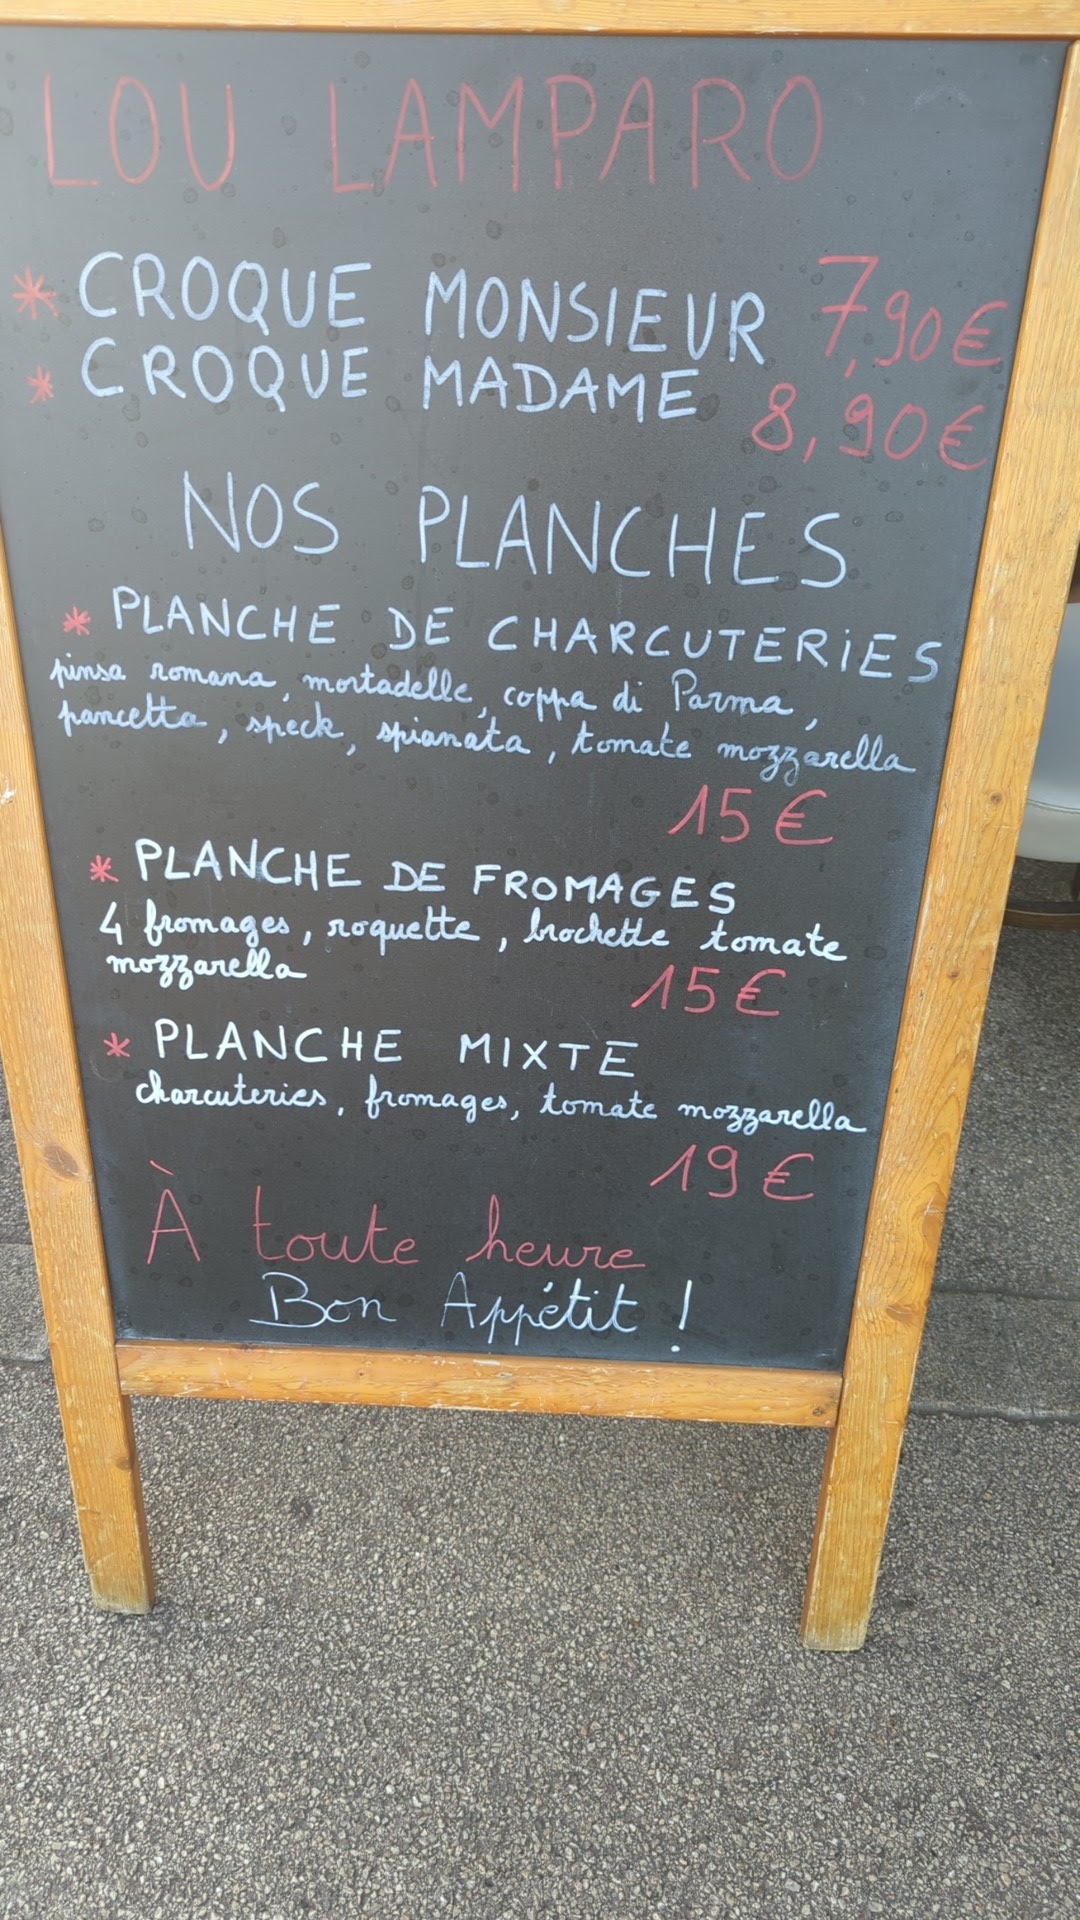 LOU LAMPARO
* CROQUE MONSIEUR 7,90€
* CROQUE MADAME 8,90€
NOS PLANCHES
* PLANCHE DE CHARCUTERIES
pinsa romana, mortadelle, coppa di Parma,
pancetta, speck, spianata, tomate mozzarella
15€
* PLANCHE DE FROMAGES
4 fromages, roquette, brochette tomate
mozzarella
15€
* PLANCHE MIXTE
charcuteries, fromages, tomate mozzarella
19€
À toute heure
Bon Appétit !